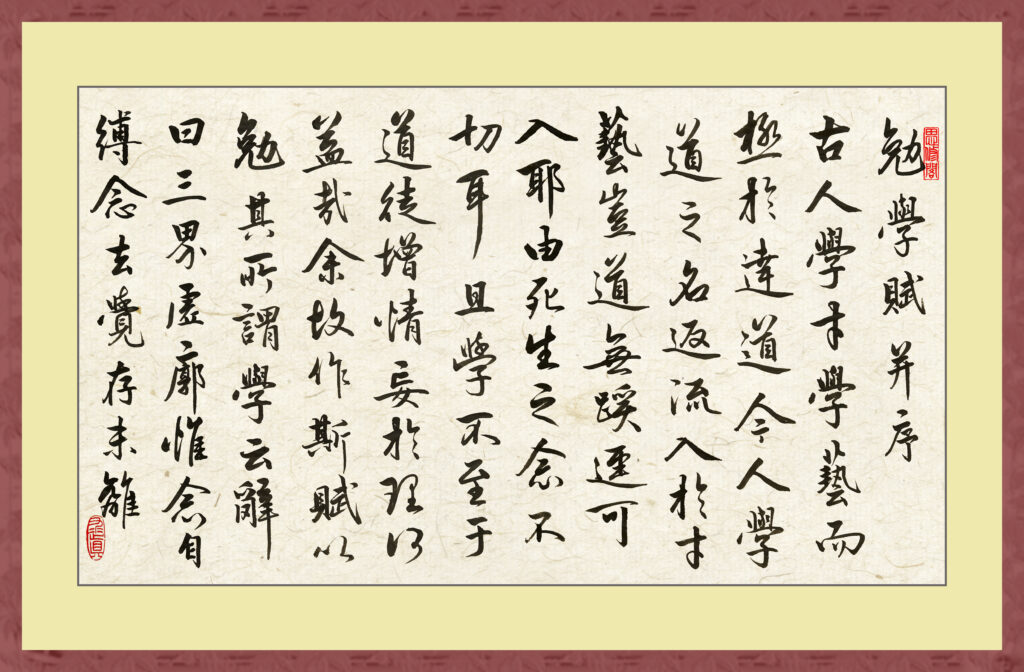 思修閣
勉學賦并序
古人學才學藝而
極於達道今人學
道之名返流入於才
藝豈道無蹊逕可
入耶由死生之念不
切耳且學不至于
道徒增情妄於理何
益哉余故作斯賦以
勉其所謂學云辭
曰三界虛廓惟念自
縛念去覺存未離